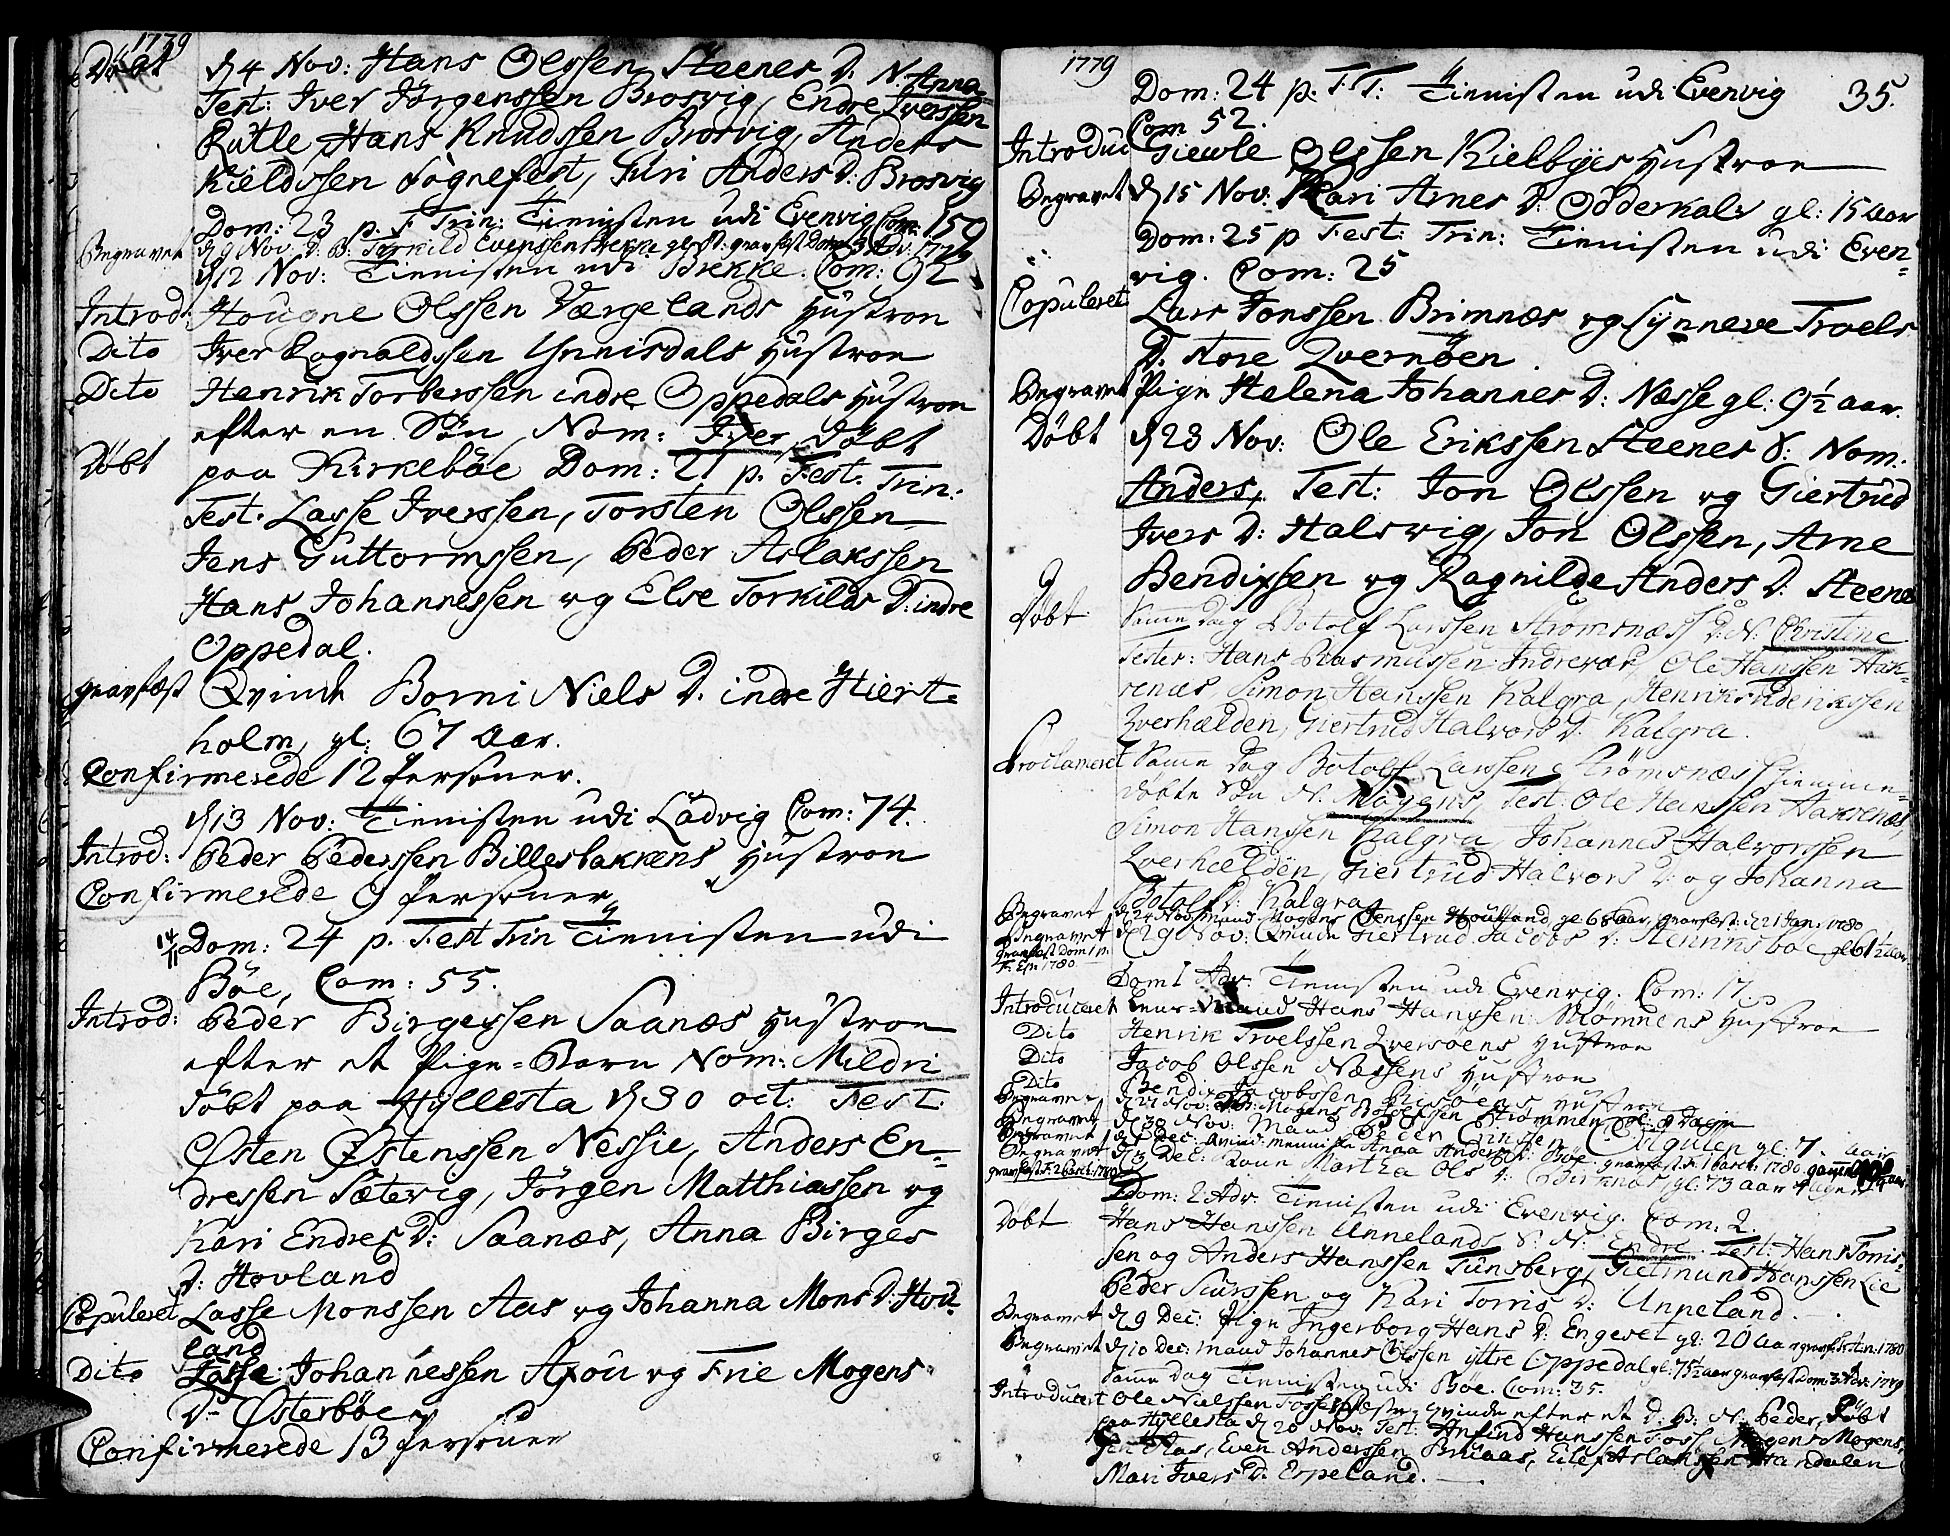 1779
Døbt d 4 Nov: Hans Olssen Steenes D. N. Anna
Test: Iver Jörgenssen Brosvig, Endre Iverssen
Rutle, Hans Knudssen Brosvig, Anders
Kieldssen Sognefest, Siri Anders D: Brosvig
Dom: 23 p. F Trin: Tienisten udi Evenvig Com: 159
Begravet d 9 Nov: D. B. Torkild Evenssen Brekke gl.
d 12 Nov: Tienisten udi Brekke. Com: 92
Introd: Hougne Olssen Værgelands Hustroe
Dito Iver Rognaldssen Ynnisdals Hustroe
Dito Henrik Torberssen indre Oppedals Hustroe
efter en Sön, Nom: Iver, döbt
Döbt paa Kirkeböe Dom: 21 p. Fest. Trin:
Test. Lasse Iverssen, Torsten Olssen
Jens Guttormssen, Peder Aslakssen
Hans Johannessen og Else Torkilds D: indre
Oppedal.
gravfæst Qvinde Borni Niels D. indre Hiert-
holm, gl: 67 Aar.
Confirmerede 12 Personer.
d 13 Nov: Tienisten udi Ladvig Com: 74.
Introd: Peder Pederssen Billesbakkens Hustroe
Confirmerede 9 Personer
14/11 Dom: 24 p. Fest Trin Tienisten udi
Böe, Com: 55.
Introd: Peder Birgessen Saanæs Hustroe
efter et Pige-Barn Nom: Mildri
döbt paa Hyllesta d 30 oct: Test:
Østen Østenssen Nessie, Anders En-
dressen Sætevig, Jörgen Matthiassen og
Kari Endres D: Saanæs, Anna Birges
D: Hovland
Copuleret Lasse Monssen Aas og Johanna Mons D: Hov-
land
Dito Lasse Johannessen Axou og Frie Mogens
D- Østerböe
Confirmerede 13 Personer
1779
Dom: 24 p. F. T: Tienisten udi Evenvig 35.
Com 52.
Introduc Giewle Olssen Kielbyes Hustroe
Begravet d 15 Nov. Kari Arnes D: Odderkalv gl: 15 aar
Dom: 25 p Fest: Trin: Tienisten udi Even-
vig. Com: 25
Copuleret Lars Jonssen Brimnæs og Synneve Troels
D: store Qvernöen.
Begravet Pige Helena Johannes D: Næsse gl: 9½ aar.
Döbt d 23 Nov: Ole Erikssen Steenes S: Nom.
Anders, Test: Jon Olssen og Giertrud
Ivers D: Halsvig, Jon Olssen, Arne
Bendixsen og Ragnilde Anders D: Steene
Döbt Samme dag Botolf Larssen Strömsnæss D: N. Christine
Testes: Hans Rasmussen Indrevær, Ole Hanssen Hak-
renæs, Simon Hanssen Kalgra, Henrik Friderikssen
Qverhælden, Giertrud Halvors D: Kalgra.
Proclameret Samme Dag Botolf Larssen Strömsnæss hiemme-
döbte Sön N. Mogens, Test: Ole Hanssen Hakrenæs,
Simon Hanssen Kalgra, Johannes Halvorssen
Qverhælden, Giertrud Halvors D: og Johanna
Botolfs D: Kalgra
Begravet d 24 Nov: Mand Mogens Jenssen gl 68 aar, gravfæst: d 21 Jan: 1780
Begravet d 29 Nov: Qvinde Giertrud Jacobs D: Henninsböe gl 61½ aar.
gravfæst Dom 1 p.
F. Epi: 1780
Dom 1 Adv. Tienisten udi Evenvig. Com: 17
Introduceret Hans Hanssen Hustroe
Dito Henrik Troelssen Qversöens Hustroe
Dito Jacob Olssen Næssens Hustroe
Dito Bendix Jacobssen Risöens Hustroe
Begravet d 21 Nov: Mogens Strömmen gl: 9 dage
Begravet d 30 Nov: Mand Peder
Begravet Dec: Anna Anders D: Böe
Begravet d 3 Dec: Martha Ols D: Birknæs gl: 73 aar
Dom: 2 Adv. Tienisten udi Evenvig. Com: 2.
Döbt Hans Hanssen Unnelands S: N: Endre. Test: Hans Torris-
sen og Anders Hanssen Tunsberg, Gietmund Hanssen Lie
Peder Siurssen og Kari Torris D: Unneland.
Begravet d 9 Dec: Pige Ingerborg Hans D: Engeset gl: 20 Aar
Begravet d 10 Dec: Mand Johannes Olssen yttre Oppedal gl: 75½ aar gravfæst Dom: 3 Adv: 1779
Samme dag Tienisten udi Böe. Com: 35.
Introduceret Ole Nielssen Qvinde efter et D: B. N: Peder, Döbt
paa Hyllesta d 20 Nov: Test: Anfind Hanssen Foss, Mogens Mogens-
sen Aas, Even Anderssen Bruaas, Eilef Aslakssen Handalen
Mari Ivers D. Erpeland.